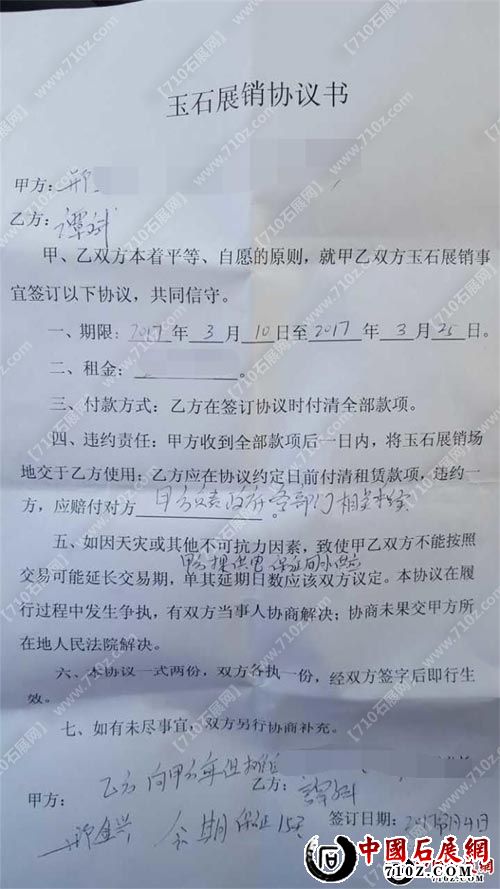 玉石展销协议书
甲方:邢
乙方:谭斌
甲、乙双方本着平等、自愿的原则,就甲乙双方玉石展销事
宜签订以下协议,共同信守。
一、期限:2017年3月10日至2017年3月25日。
二、租金:
三、付款方式:乙方在签订协议时付清全部款项。
四、违约责任:甲方收到全部款项后一日内,将玉石展销场
地交于乙方使用;乙方应在协议约定日前付清租赁款项,违约一
方,应赔付对方甲方负责政府各部门相关
五、如因天灾或其他不可抗力因素,致使甲乙双方不能按照
交易可能延长交易期,单其延期日数应该双方议定。本协议在履
行过程中发生争执,有双方当事人协商解决;协商未果交甲方所
在地人民法院解决。
六、本协议一式两份,双方各执一份,经双方签字后即行生
效。
七、如有未尽事宜,双方另行协商补充。
乙方向甲方
甲方:
乙方:谭斌
邢金兴 会期保证15天
签订日期:2017年3月4日
中國石展網
710Z.COM
【710石展网】
www.710z.com